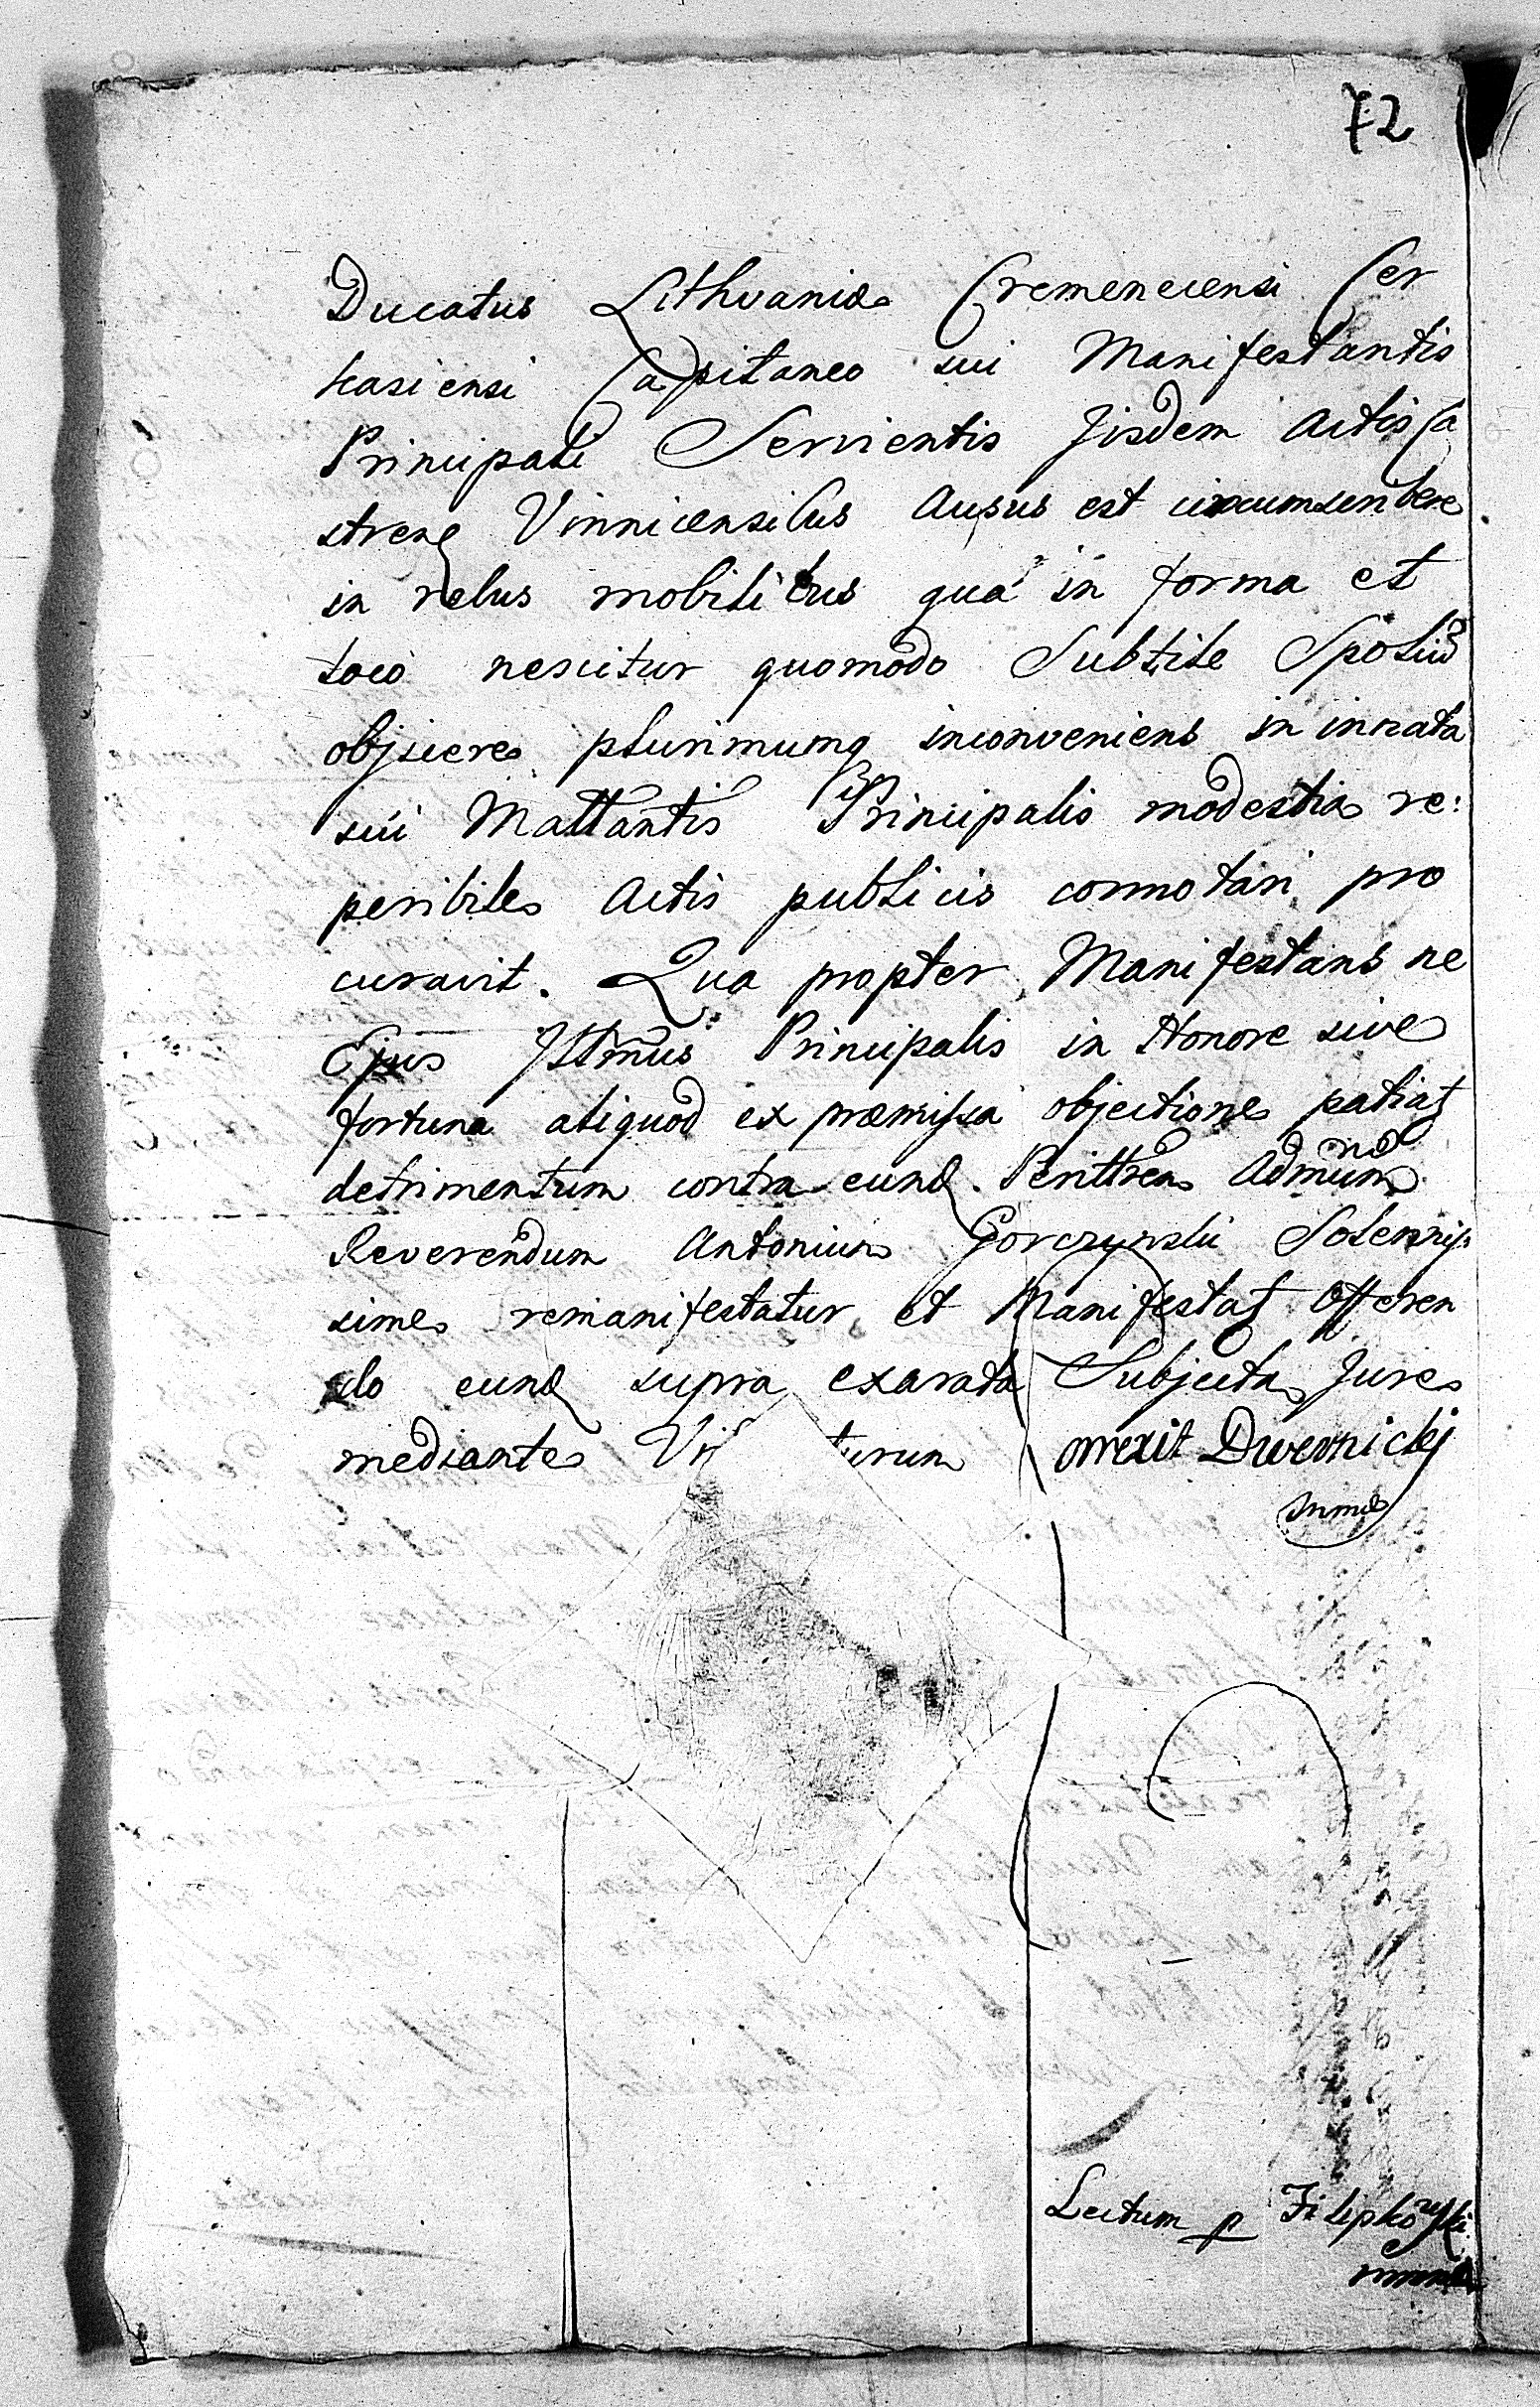 72
Ducatus Lithvaniæ Cremenecensi Cer
kasiensi Capitaneo sui Manifestantis
Principali Servientis Iisdem Actis Ca
strenq Vinnicensibus Ausus est circumscribere
in rebus mobilibus qua in forma et
loco nescitur quomodo Subtile Spoliũ
objicere plurimumq inconveniens in innata
sui Mattantis Principalis modestia re:
peribile Actis publicis connotari pro
curavit. Qua propter Manifestans ne
Ejus Principalis in Honore sive
fortuna aliquod ex præmissa objectione patiat
detrimentum contra eund Perittrem Admnd
Reverendum Antonium Gorczynski Solennis
sime remanifestatur et Manifestat Offeren
do eund supra exarata Subjecta Jure
mediante turum
Correxit Dwernickj
mmp
Lectum p Filipkowski
mmp